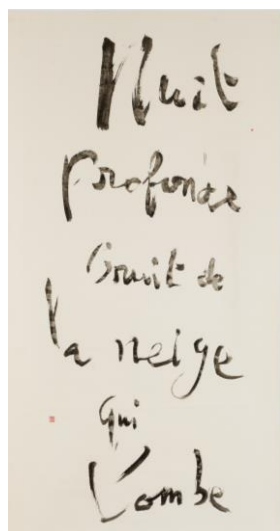 Nuit
profonde
bruit de
la neige
qui
tombe